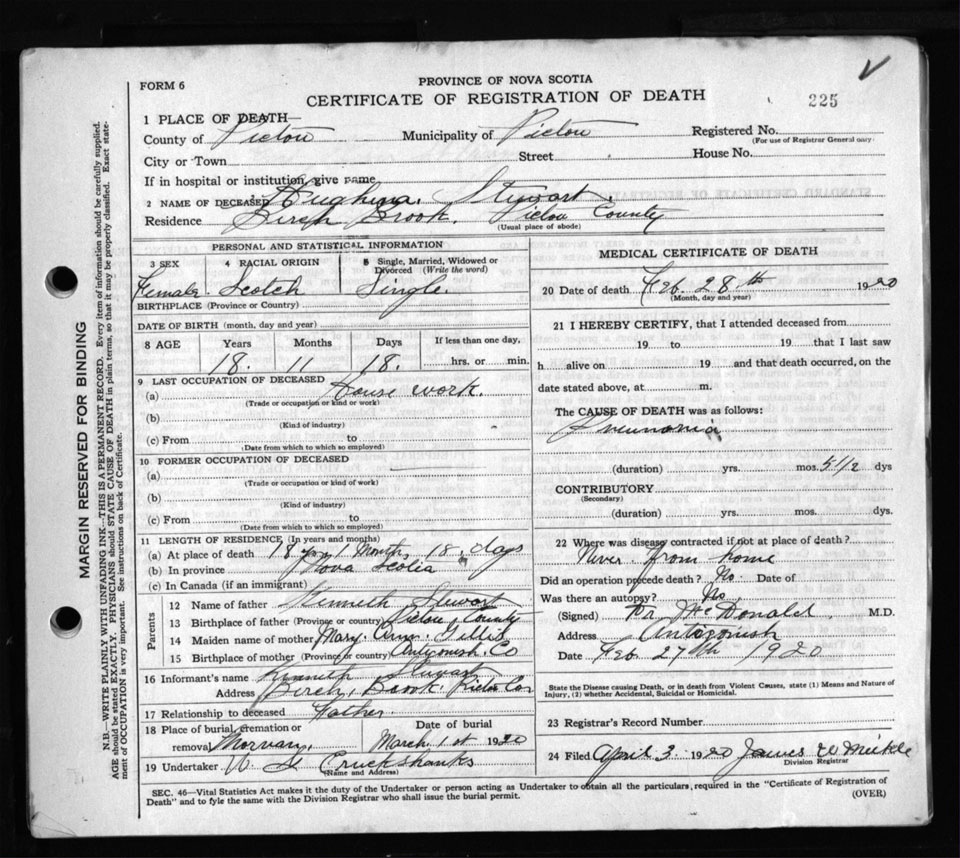 FORM 6
PROVINCE OF NOVA SCOTIA
CERTIFICATE OF REGISTRATION OF DEATH
225
1 PLACE OF DEATH—
County of Pictou Municipality of Pictou Registered No.
(For use of Registrar General only
City or Town Street House No.
If in hospital or institution, give name
2 NAME OF DECEASED Hughina Stewart
Residence Birch Brook. Pictou County
(Usual place of abode)
PERSONAL AND STATISTICAL INFORMATION
3 SEX 4 RACIAL ORIGIN 5 Single, Married, Widowed or
Divorced (Write the word)
Female Scotch Single
BIRTHPLACE (Province or Country)
DATE OF BIRTH (month, day and year)
8 AGE Years Months Days If less than one day,
18. 11 18. hrs. or min.
9 LAST OCCUPATION OF DECEASED
(a) House work.
(Trade or occupation or kind or work)
(b)
(Kind of industry)
(c) From to
(Date from which to which so employed)
10 FORMER OCCUPATION OF DECEASED
(a)
(Trade or occupation or kind of work)
(b)
(Kind of industry)
(c) From to
(Date from which to which so employed)
11 LENGTH OF RESIDENCE (In years and months)
(a) At place of death 18 yrs 1 Month, 18. days
(b) In province Nova Scotia "
(c) In Canada (if an immigrant)
Parents
12 Name of father Kenneth Stewart
13 Birthplace of father (Province or country) Pictou County
14 Maiden name of mother Mary Ann Gillis
15 Birthplace of mother (Province or country) Antigonish Co
16 Informant's name Kenneth Stewart
Address Birch Brook Pictou Co
17 Relationship to deceased Father
18 Place of burial, cremation or Date of burial
removal March 1st 1920
19 Undertaker Cruckshanks
(Name and Address)
MEDICAL CERTIFICATE OF DEATH
20 Date of death Feb. 28th 1920
(Month, day and year)
21 I HEREBY CERTIFY, that I attended deceased from
19 to 19 that I last saw
h alive on 19 and that death occurred, on the
date stated above, at m.
The CAUSE OF DEATH was as follows:
Pneunonia
(duration) yrs. mos. 5 1/2 dys
CONTRIBUTORY
(Secondary)
(duration) yrs. mos. dys.
22 Where was disease contracted if not at place of death?
Never from home
Did an operation precede death? No Date of
Was there an autopsy? No
(Signed) Dr McDonald M.D.
Address Antigonish
Date Feb 27th 1920
State the Disease causing Death, or in death from Violent Causes, state (1) Means and Nature of
Injury, (2) whether Accidental, Suicidal or Homicidal.
23 Registrar's Record Number
24 Filed April 3 1920 James W Meikle
Division Registrar
SEC. 46—Vital Statistics Act makes it the duty of the Undertaker or person acting as Undertaker to obtain all the particulars, required in the "Certificate of Registration of
Death" and to fyle the same with the Division Registrar who shall issue the burial permit. (OVER)
MARGIN RESERVED FOR BINDING
N.B.—WRITE PLAINLY WITH UNFADING INK—THIS IS A PERMANENT RECORD. Every item of information should be carefully supplied.
AGE should be stated EXACTLY. PHYSICIANS should STATE CAUSE OF DEATH in plain terms, so that it may be properly classified. Exact state-
ment of OCCUPATION is very important. See instructions on back of Certificate.